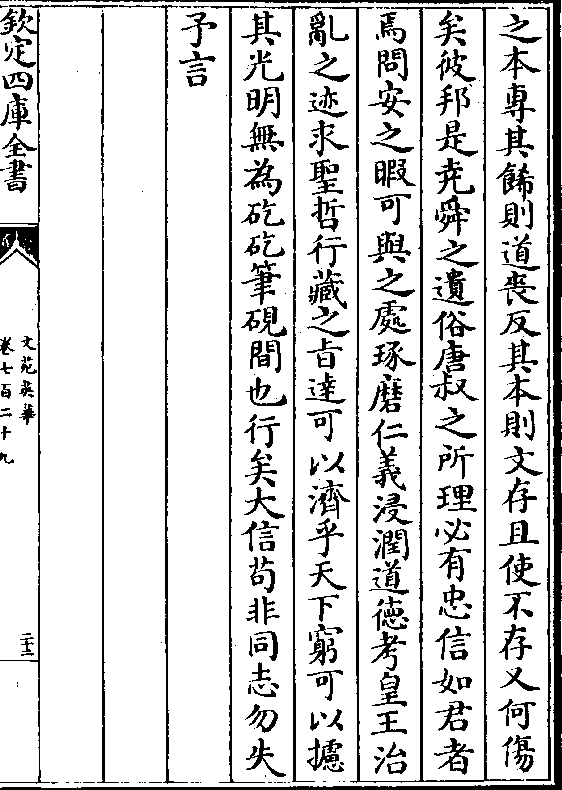 之本專其餙則道喪反其本則文存且使不存又何傷
矣彼邦是尭舜之遺俗唐叔之所理必有忠信如君者
焉問安之暇可與之處琢磨仁義浸潤道徳考皇王治
亂之迹求聖哲行藏之旨達可以濟乎天下窮可以攄
其光明無為矻矻筆硯間也行矣大信苟非同志勿失
予言
欽定四庫全書
文苑英華
卷七百二十九
二十三